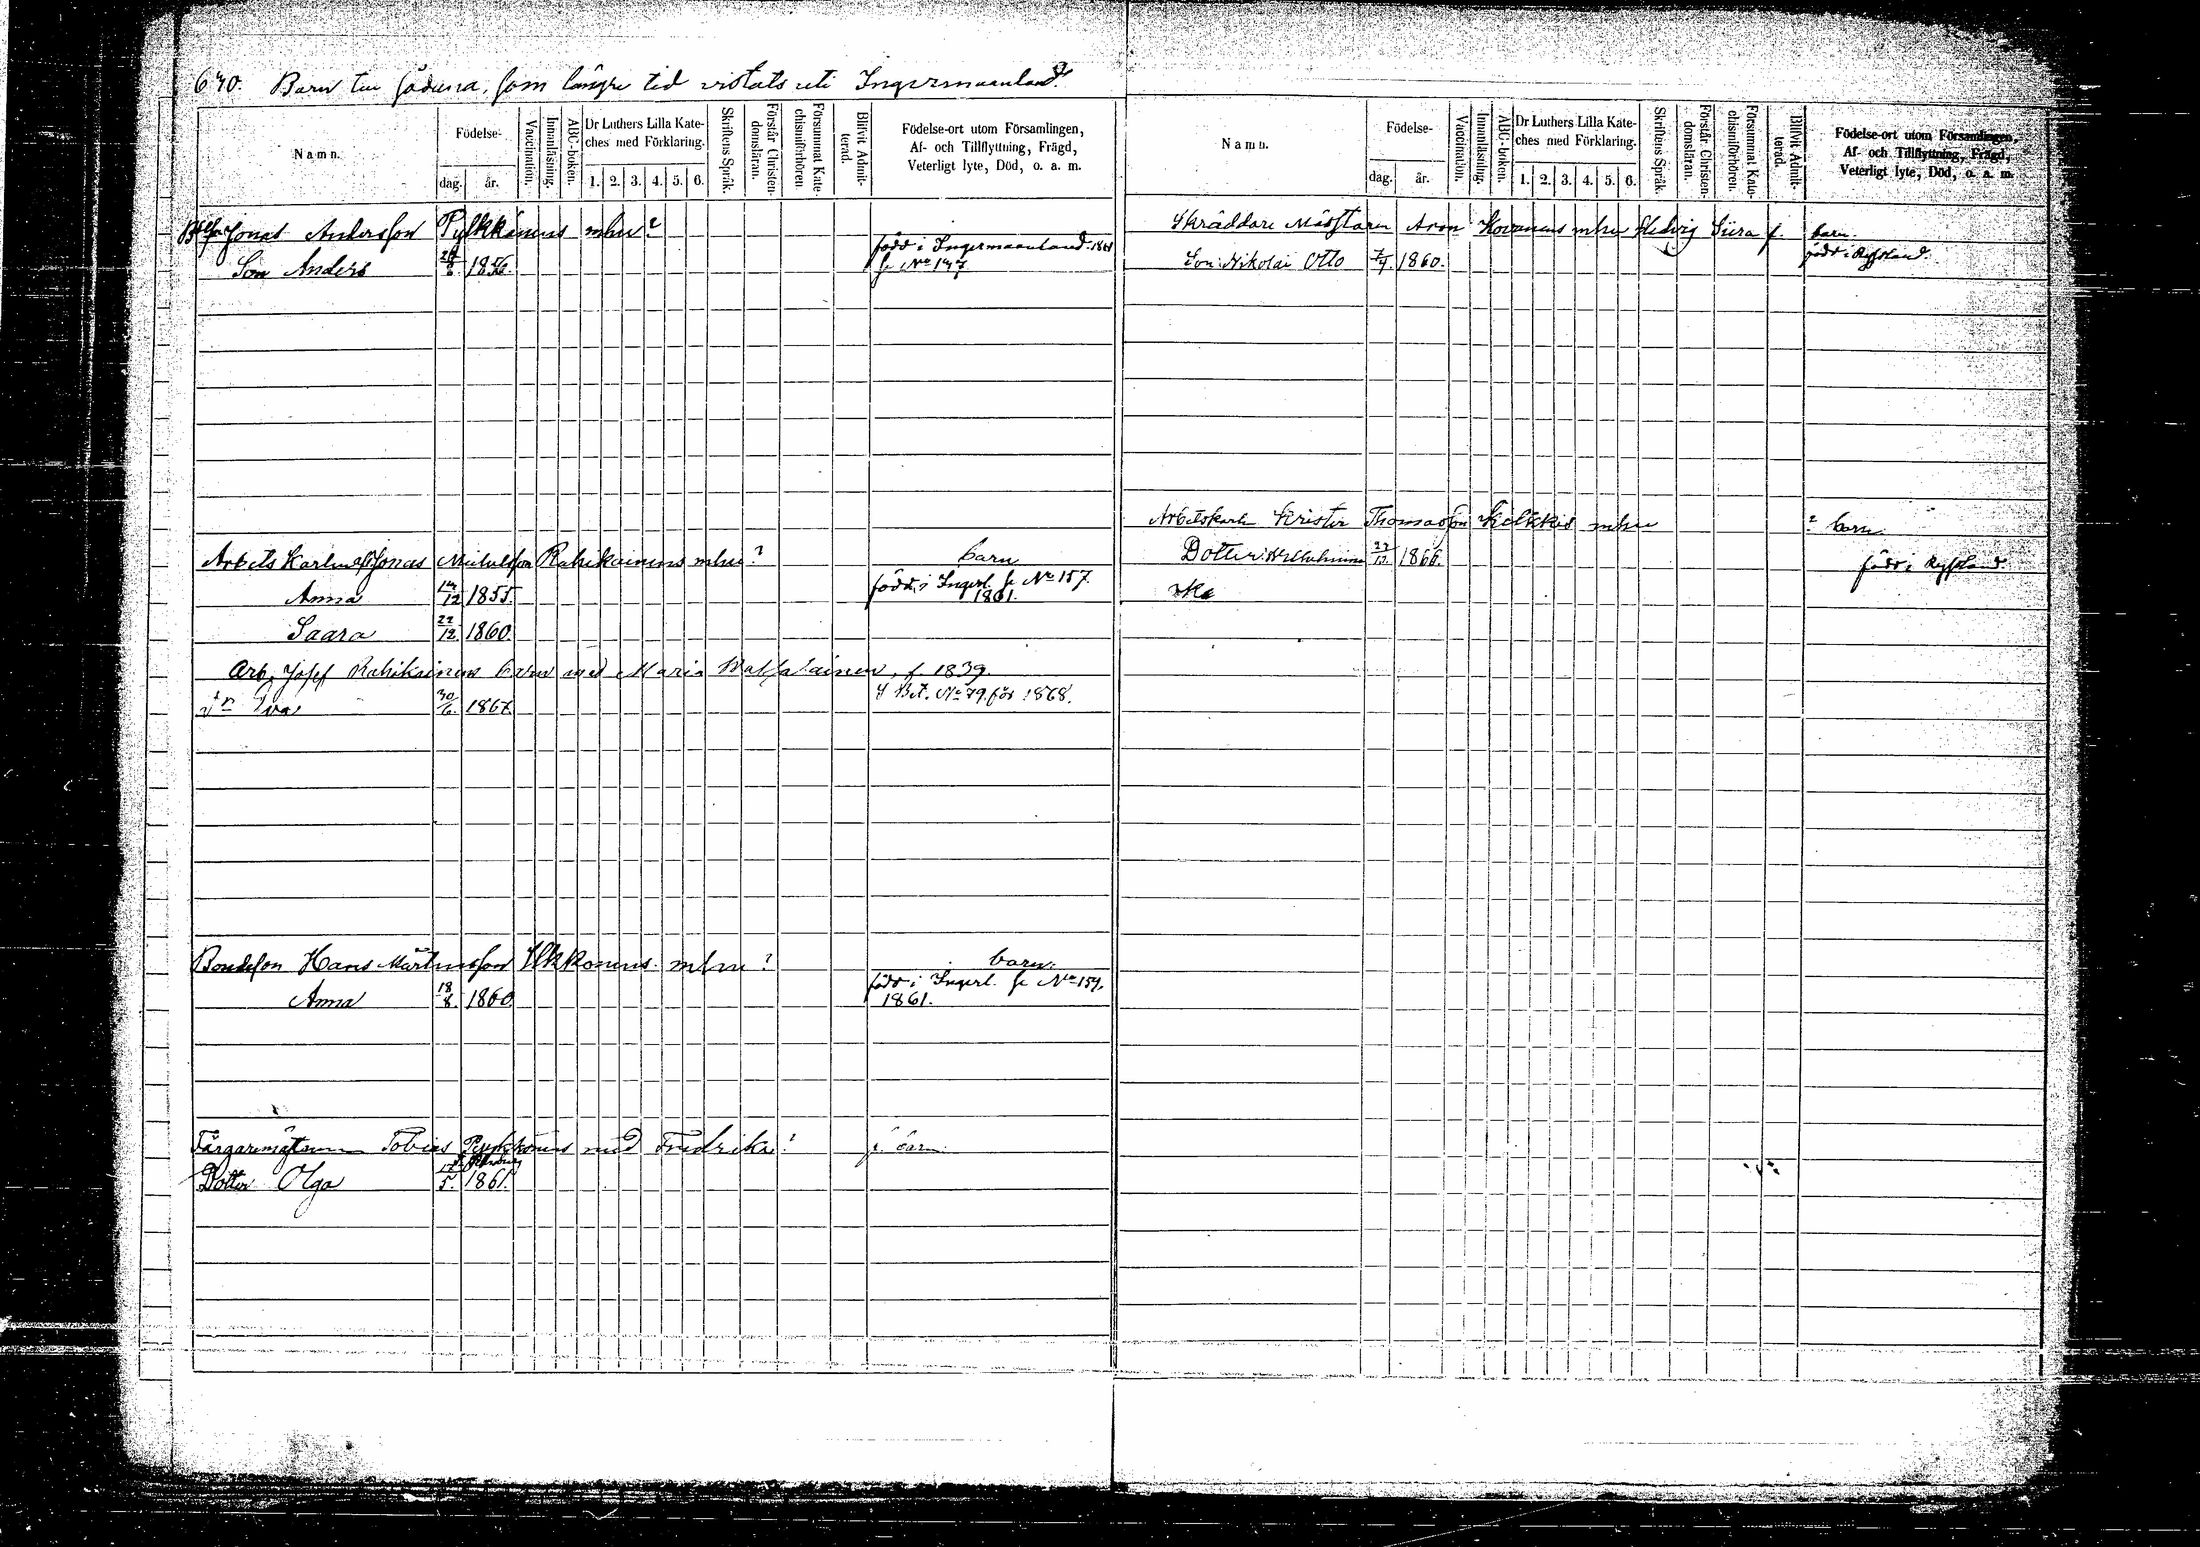 640. Barn till fäderna, som längre tid vistats uti Ingermanland.
Namn.
Födelse-
dag.
år.
Vaccination.
Innanläsning.
ABC-boken.
Dr Luthers Lilla Kate-
ches med Förklaring.
1. 2. 3. 4. 5. 6.
Skriftens Språk.
Förstår Christen-
domsläran.
Försummat Kate-
chismiförhören.
Blifvit Admit-
terad.
Födelse-ort utom Församlingen,
Af- och Tillflyttning, Frägd,
Veterligt lyte, Död, o. a. m.
Jonas Andersson Pylkkänens mhu?
född i Ingermanland. 1861
Son Anders 1856. se No 147
Arbets Karlen Jonas Rahikainens mhu? barn
Anna 14/12 1855. född i Ingerl. se No 157.
1861.
Saara 22/12 1860
Arb. Josef Rahikainens barn med Maria f 1839.
Eva 30/6. 1867. Bet. No 79 för 1868.
Bondeson Hans Mårtensson Ukkonens mhu? barn.
född i Ingerl. se No 159.
Anna 18/8. 1860 1861.
Färgaremästaren Tobias med Fredrika? barn
Dotter Olga 5. 1861.
Namn.
Födelse-
dag.
år.
Vaccination.
Innanläsning.
ABC-boken.
Dr Luthers Lilla Kate-
ches med Förklaring.
1. 2. 3. 4. 5. 6.
Skriftens Språk.
Förstår Christen-
domsläran.
Försummat Kate-
chismiförhören.
Blifvit Admit-
terad.
Födelse-ort utom Församlingen,
Af- och Tillflyttning, Frägd,
Veterligt lyte, Död, o. a. m.
Skräddare Mästaren Aron Kovanens mhu Hedvig Siira f. barn.
Son Nikolai Otto 7/4 1860. född i Ryssland.
Arbetskarln Krister Thomasson mhu ? barn
Dotter Wilhelmina 1866. född i Ryssland.